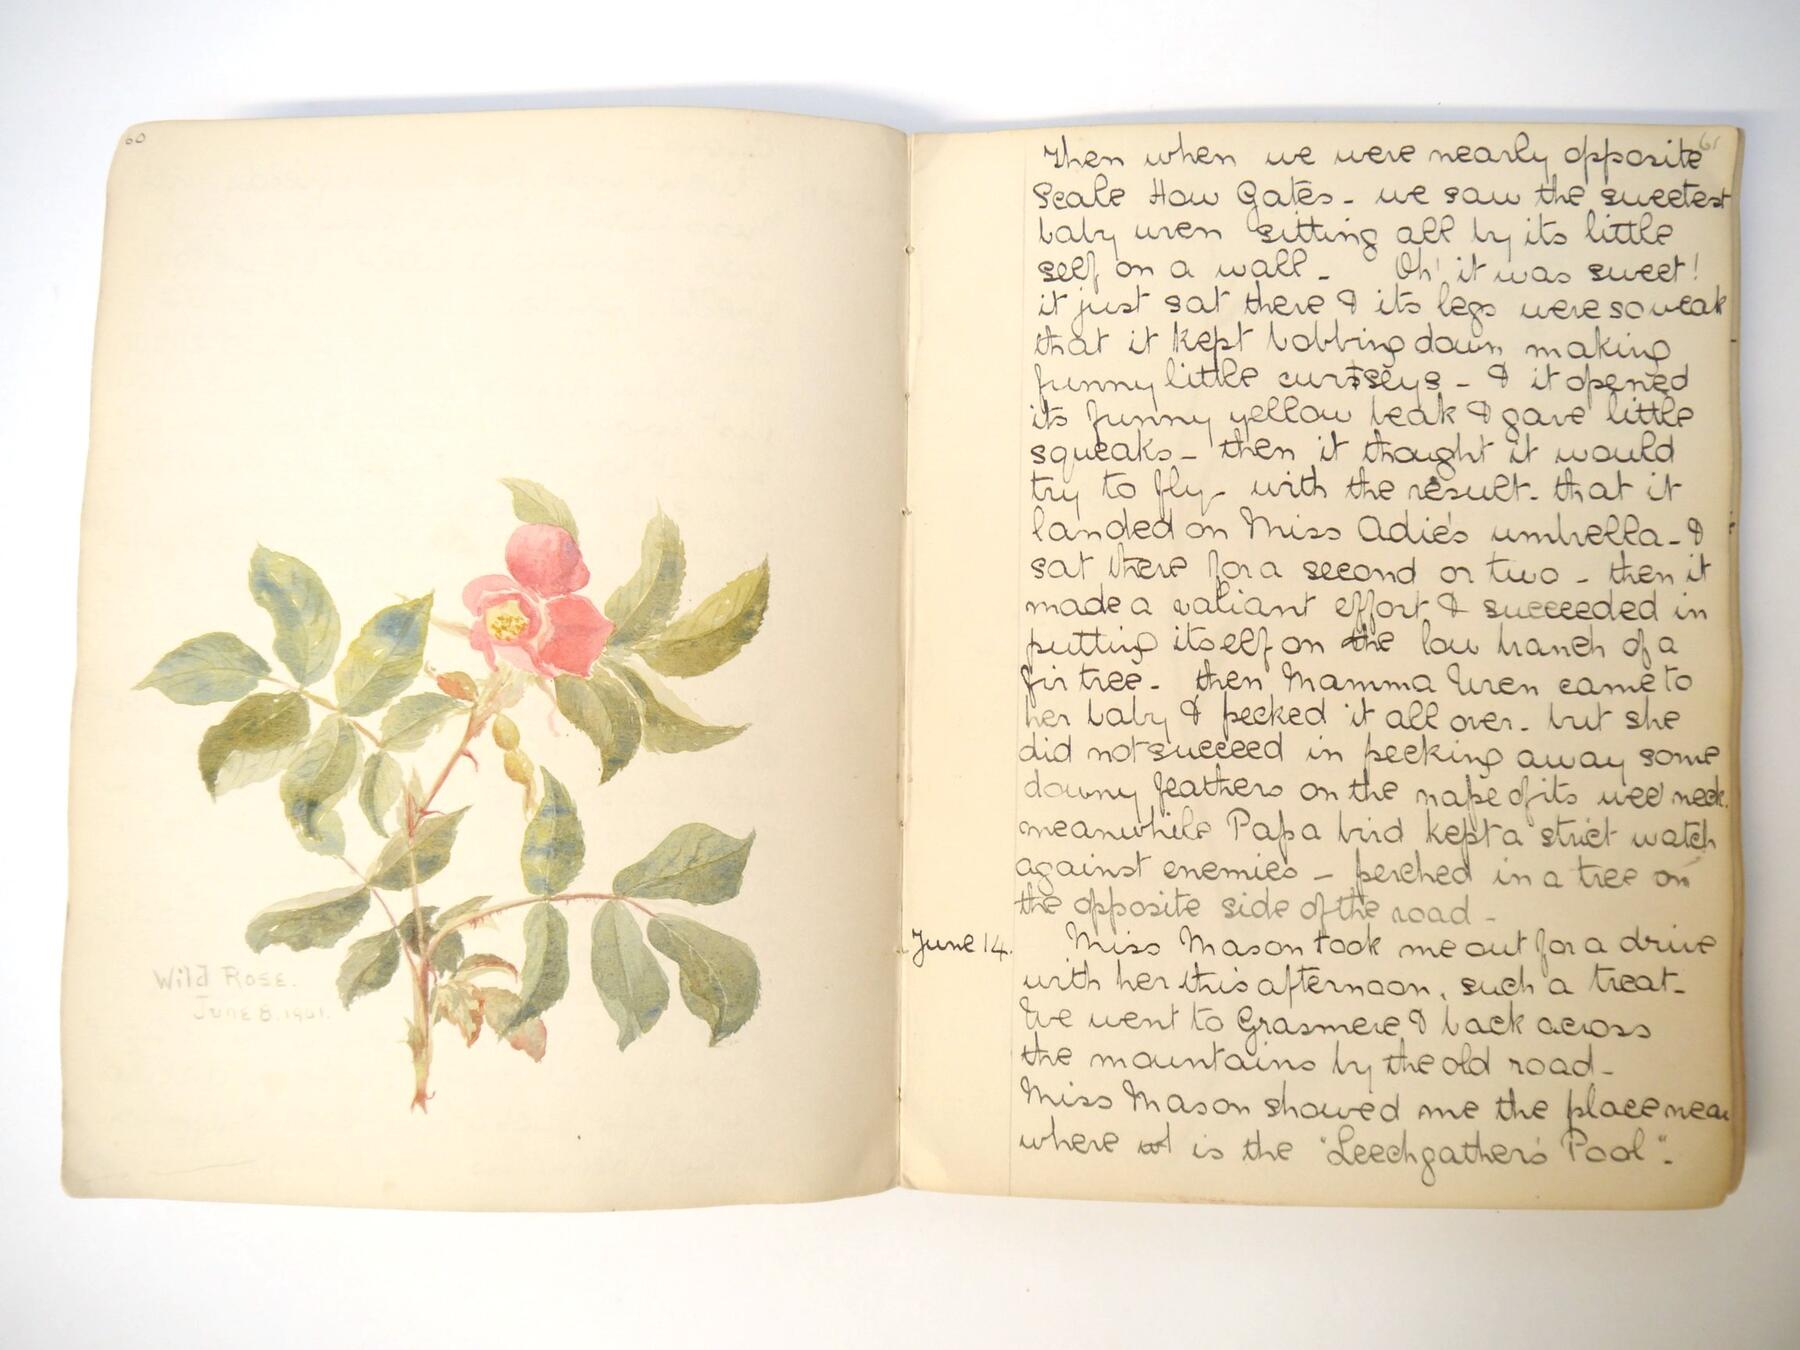 60
Wild Rose.
June 8. 1901.
61
Then when we were nearly opposite
Scale How Gates - we saw the sweetest
baby wren sitting all by its little
self on a wall - Oh! it was sweet!
it just sat there & its legs were so weak
that it kept bobbing down making
funny little curtseys - & it opened
its funny yellow beak & gave little
squeaks - then it thought it would
try to fly - with the result - that it
landed on Miss Adie's umbrella - &
sat there for a second or two - then it
made a valiant effort & succeeded in
putting itself on the low branch of a
fir tree - then Mamma Wren came to
her baby & pecked it all over - but she
did not succeed in pecking away some
downy feathers on the nape of its wee neck.
meanwhile Papa bird kept a strict watch
against enemies - perched in a tree on
the opposite side of the road -
June 14. Miss Mason took me out for a drive
with her this afternoon, such a treat -
We went to Grasmere & back across
the mountains by the old road -
Miss Mason showed me the place near
where is the "Leechgather's Pool".